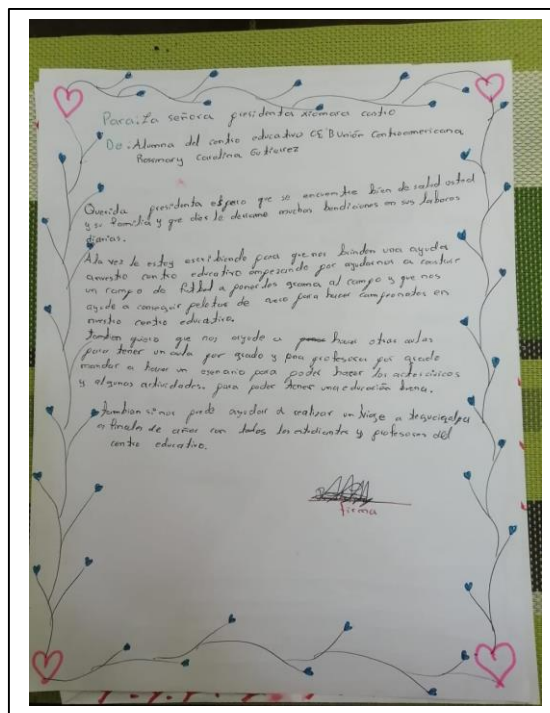 Para: La señora presidenta xiomara castro
De: Alumna del centro educativo CEB Unión Centroamericana
Rosmary Carolina Gutierrez
Querida presidenta espero que se encuentre bien de salud usted
y su familia y que dios le derrame muchas bendiciones en sus labores
diarias.
A la vez le estoy escribiendo para que nos brinden una ayuda
a nuestro centro educativo empezando por ayudarnos a
un campo de futbol a ponerles grama al campo y que nos
ayude a conseguir pelotas de para hacer campeonatos en
nuestro centro educativo.
tambien quiero que nos ayude a hacer otras aulas
para tener un aula por grado y para profesores por grado
mandar a hacer un esenario para poder hacer los actos cívicos
y algunas actividades, para poder tener una educación buena.
tambien si nos puede ayudar a realizar un viaje a tegucigalpa
a finales de año con todos los estudiantes y profesores del
centro educativo.
firma